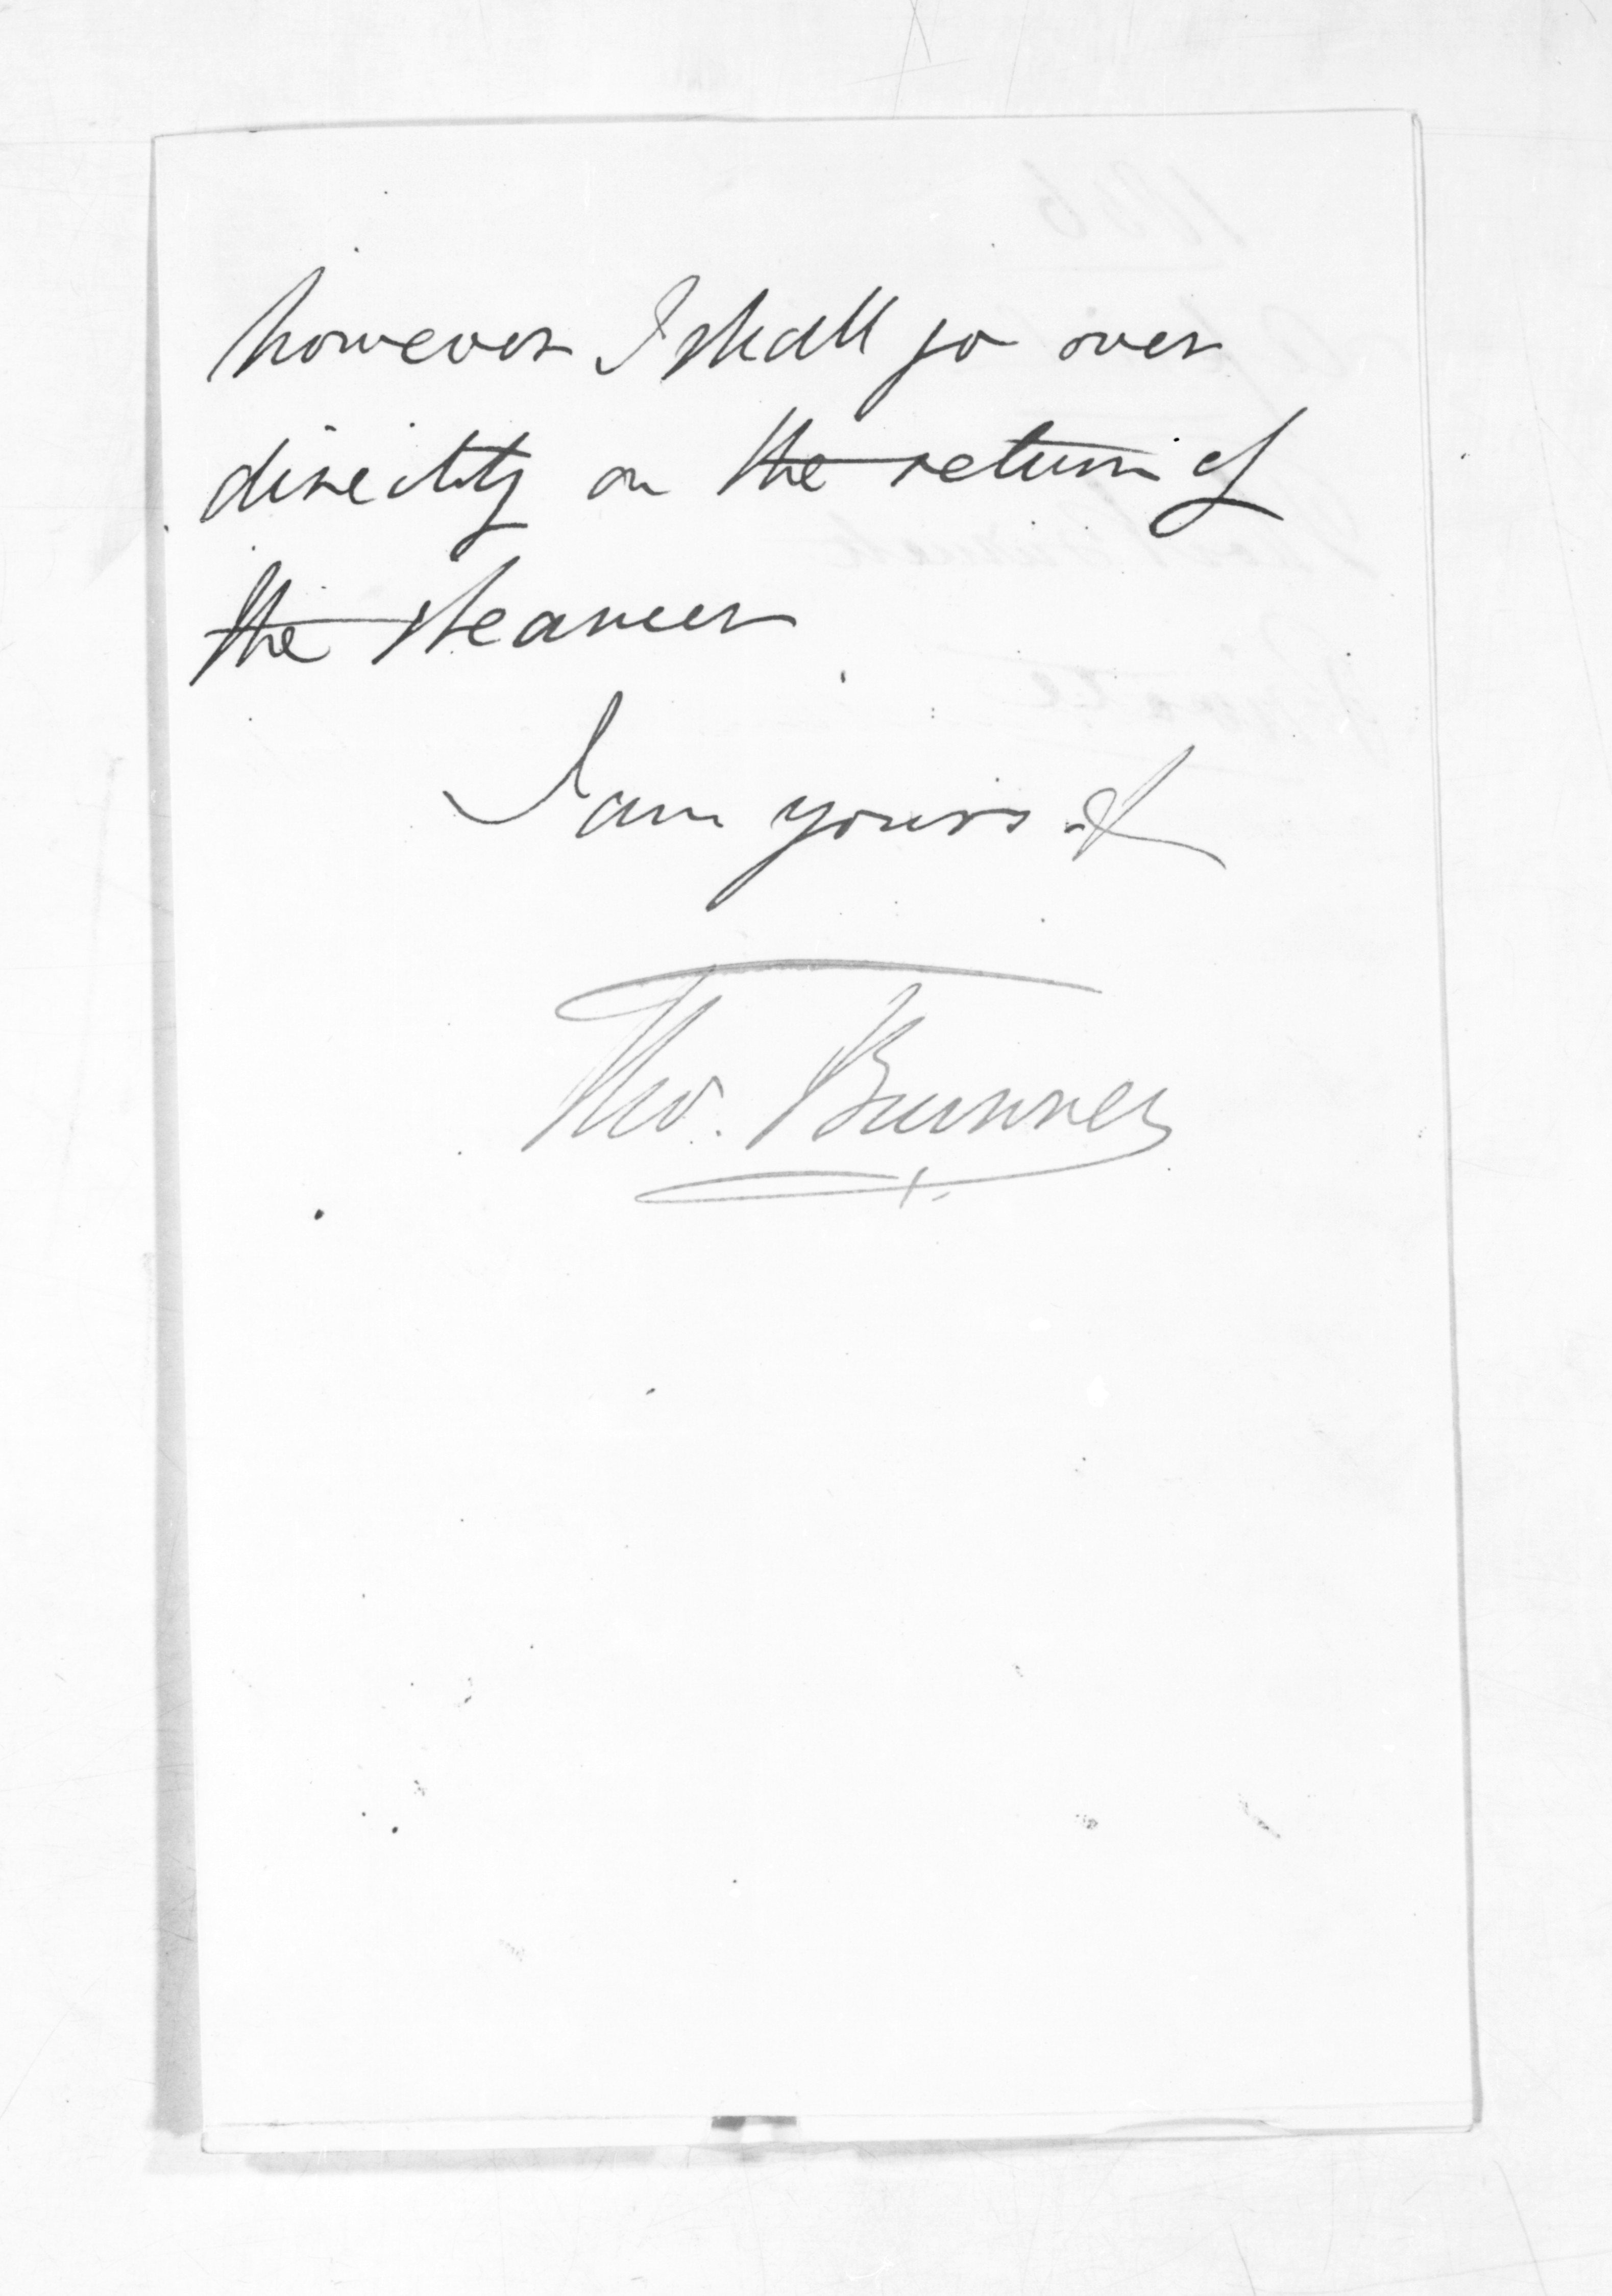 however I shall go over
directly on the return of
the steamer
I am yours &
Thos. Brunner